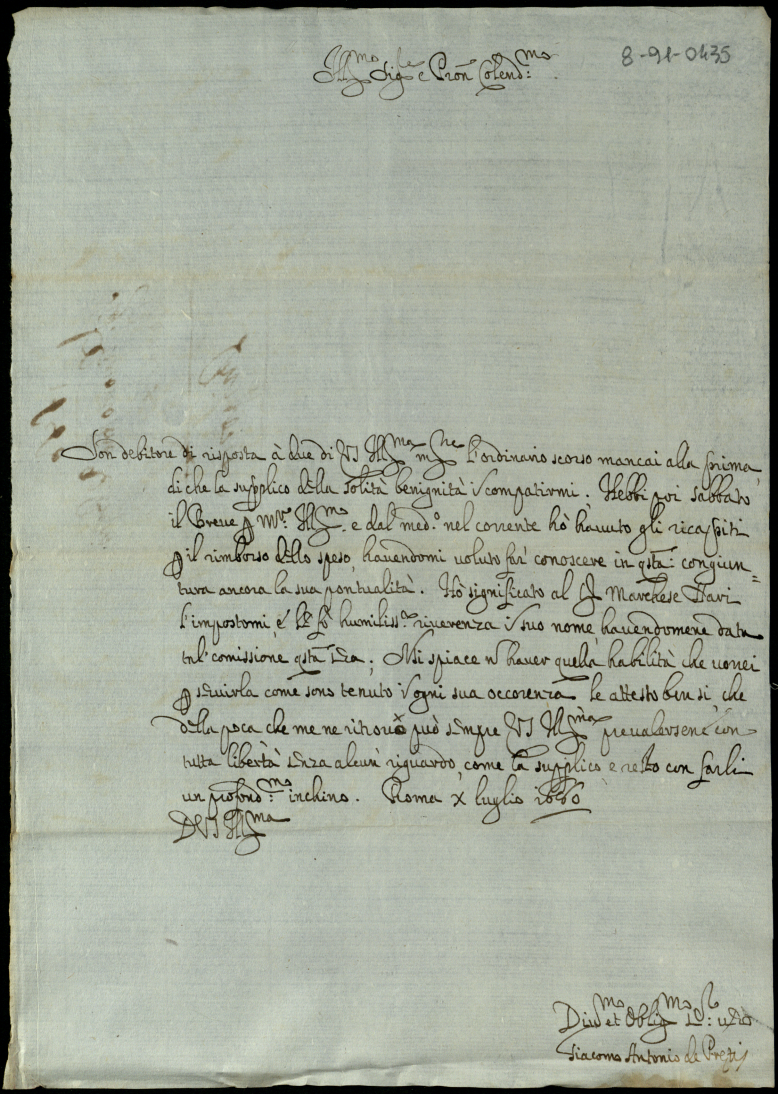 8-91-0435
Ill.mo Sig.re e Pron Colend.mo
Son debitore di risposta à due di VS Ill.ma L'ordinario scorso mancai alla prima
di che la supplico della solità benignità compatirmi. Hebbi poi sabbato
il Breve Ill.mo e dal med.o nel corrente hò havuto gli ricapiti
il rimborso dello speso, havendomi voluto far' conoscere in qsta: congiun=
tura ancora la sua pontualità. Hò significato al Marchese
l'impostomi è humiliss.a riverenza suo nome, havendomene data
tal' comissione qsta. Mi spiace haver quella habilità che vorrei
servirla come sono tenuto ogni sua occorenza le attesto ben si, che
della poca che me ne ritrovo può sempre VS Ill.ma prevalersene con
tutta libertà senza alcun' riguardo, come la supplico e resto con farli
un profond.mo inchino. Roma X luglio
D VS Ill.ma
Div.mo et Oblig.mo
Giacomo Antonio de